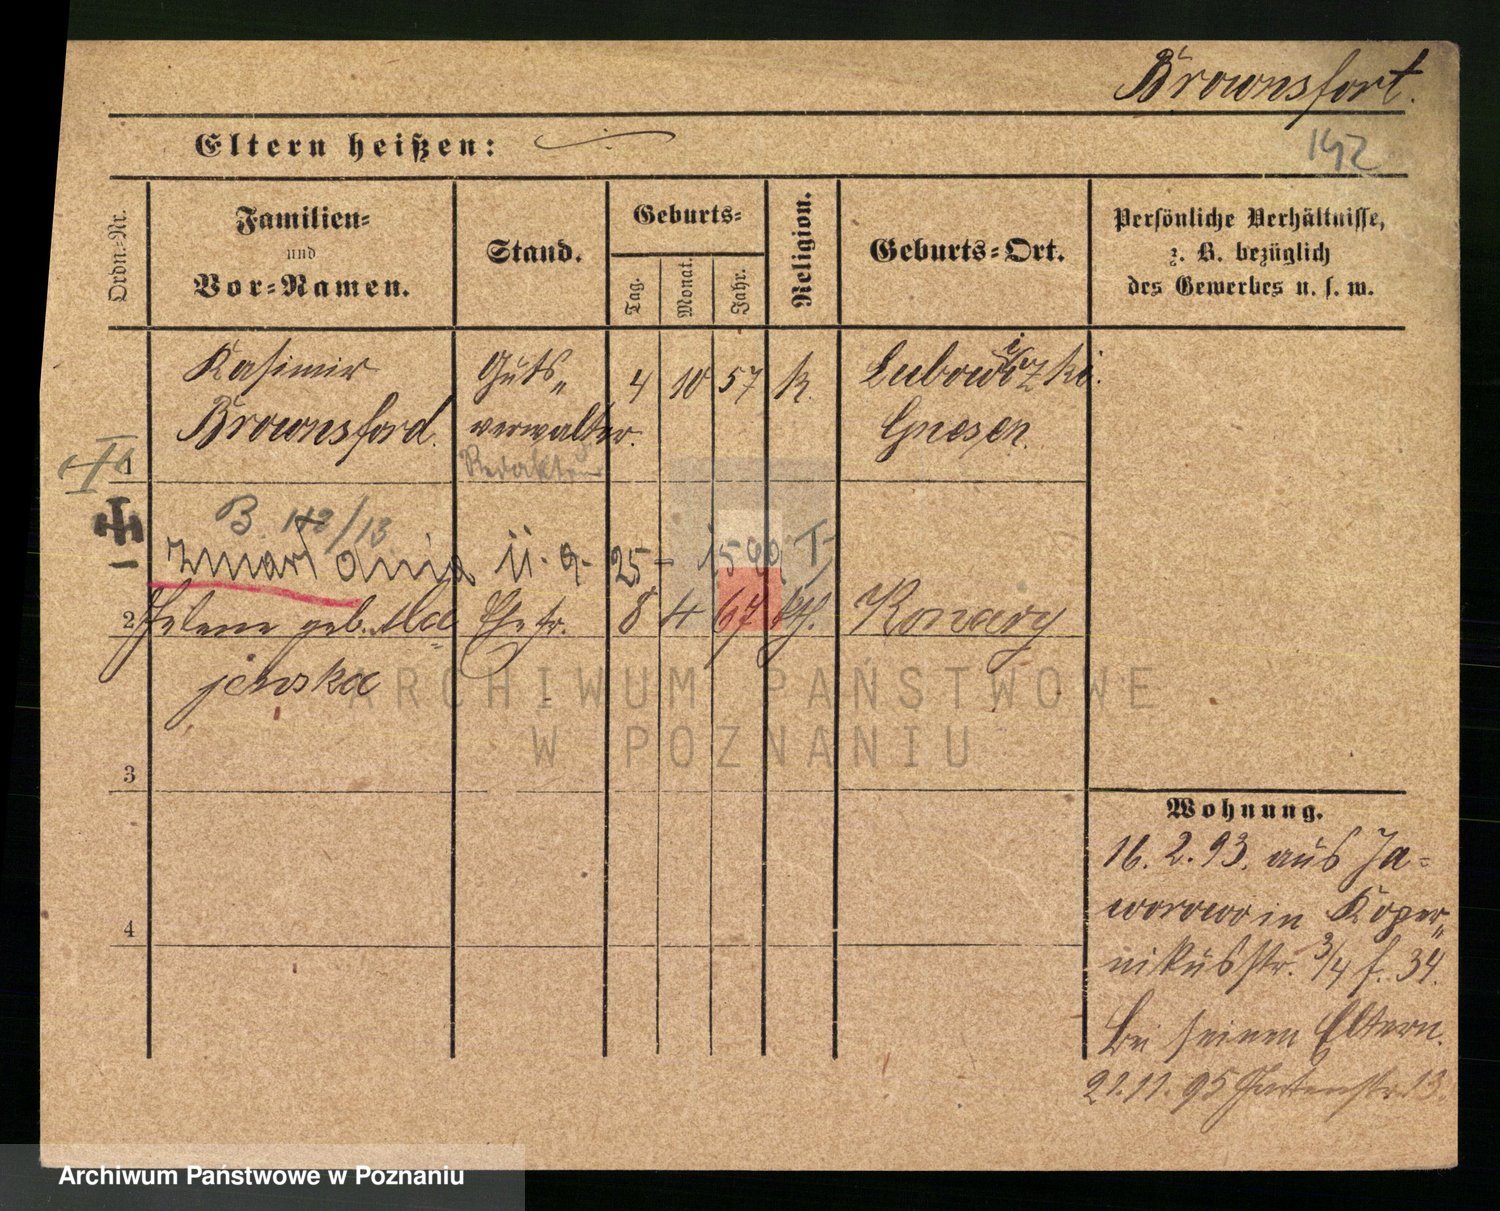 Brownsfort.
Eltern heißen:
142
Ordn.-Nr.
Familien-
und
Vor-Namen.
Stand.
Geburts-
Tag.
Monat.
Jahr.
Religion.
Geburts-Ort.
Persönliche Verhältnisse,
z. B. bezüglich
des Gewerbes u. s. w.
1
Kasimir
Brownsford.
Guts„
verwalter.
Redakteur
4 10 57 k.
Gnesen.
B. 142/13
zmarł dnia 11. 9. 25
2
Helene geb. Ma„
jewska
Ehefr.
8 4 67 kth.
Konary
3
4
Wohnung.
16. 2. 93. aus Ja-
worowo in Koper„
nikusstr. 3/4 f. 34.
bei seinen Eltern.
21.11. 95 Gartenstr. 13.
ARCHIWUM PAŃSTWOWE
W POZNANIU
Archiwum Państwowe w Poznaniu